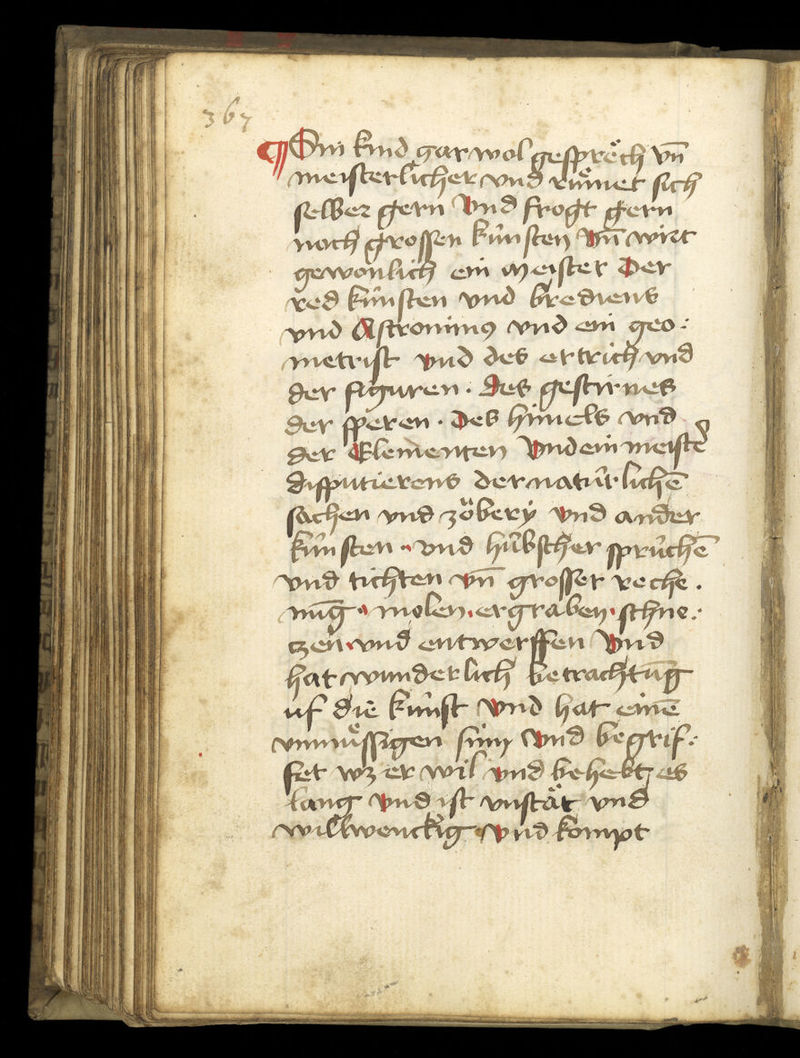 367
¶ Ein kind gar wol gesprǒch vn̄
meisterlicher vnd rǔmet sich
selber gern Vnd frogt gern
noch grossen kúnsten Vn̄ wirt
gewonlich ein meister Der
red kúnsten vnd brediens
vnd Astronimꝰ vnd ein geo:
metrist vnd des ertrich vnd
der figuren · des gestirnes
der speren · Des himels vnd
der Elementen Vnd ein meist͛
disputierens der natúrlichē
sachen vnd zöbery vnd ander
kúnsten · vnd húbscher sprúchē
vnd tichten vn̄ grosser reche ·
nūg · molen · ergraben · schne:
tzen · vnd entwerffen Vnd
hat wunderlich betrachtūg
uf die kunst Vnd hat einē
vnmůssigen sinn Vnd begrif:
fet wz er wil vnd behebt es
lang Vnd ist vnstät vnd
willwenckig Vnd kompt